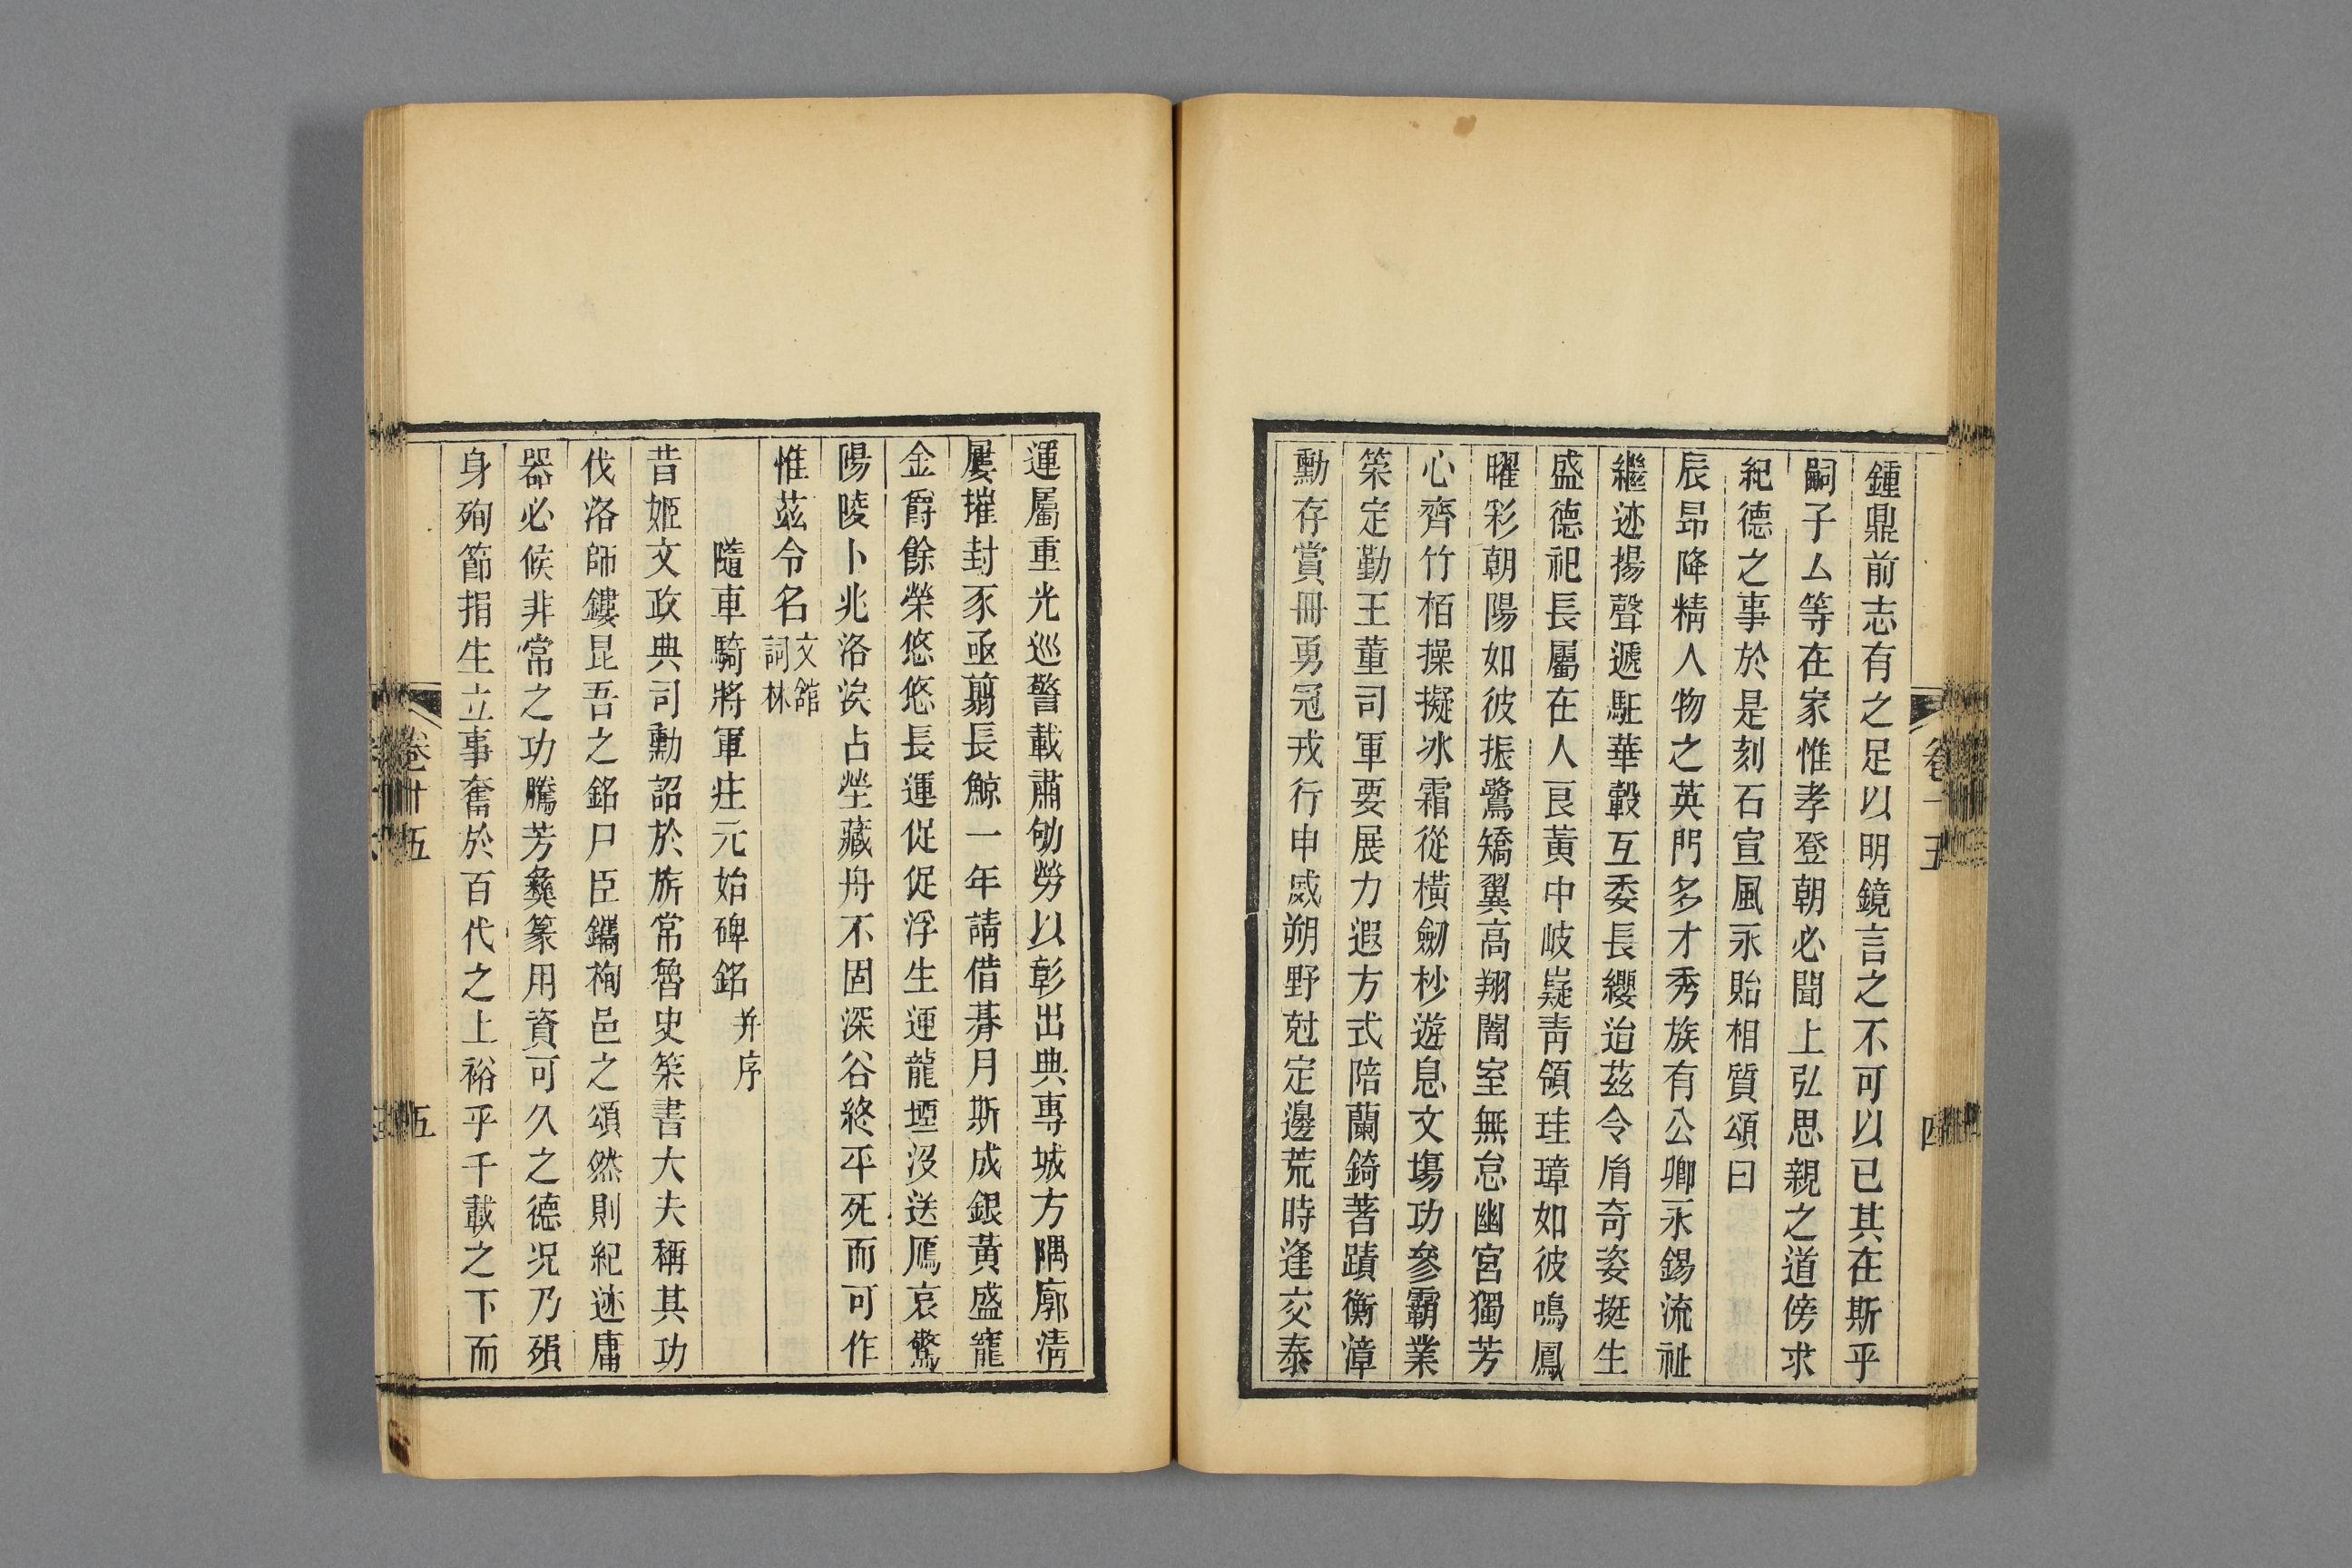 鍾鼎前志有之足以明鏡言之不可以已其在斯乎
嗣子厶等在家惟孝登朝必聞上弘思親之道傍求
紀德之事於是刻石宣風永貽相質頌曰
辰昴降精人物之英門多才秀族有公卿永錫流祉
繼迹揚聲遞駈華轂互委長纓迨茲令胷奇姿挺生
盛德祀長屬在人良黃中岐嶷靑領珪璋如彼鳴鳳
曜彩朝陽如彼振鷺矯翼高翔闇室無怠幽宮獨芳
心齊竹栢操擬冰霜從橫劒杪遊息文塲功參霸業
筞定勤王董司軍要展力遐方式陪蘭錡著蹟衡漳
勳存賞冊勇冠戎行申威朔野尅定邊荒時逢交泰
卷十五
四
運屬重光巡警載肅劬勞以彰出典專城方隅廓淸
屢摧封豕亟翦長鯨一年請借朞月斯成銀黃盛寵
金爵餘榮悠悠長運促促浮生逦龍堙沒送鴈哀驚
陽陵卜兆洛涘占塋藏舟不固深谷終平死而可作
惟茲令名文舘詞林
隨車騎將軍庄元始碑銘并序
昔姬文政典司勳詔於旂常魯史筞書大夫稱其功
伐洛師鏤昆吾之銘尸臣鐫栒邑之頌然則紀迹庸
器必候非常之功騰芳彝篆用資可久之德况乃殞
身殉節捐生立事奮於百代之上裕乎千載之下而
卷十五
五